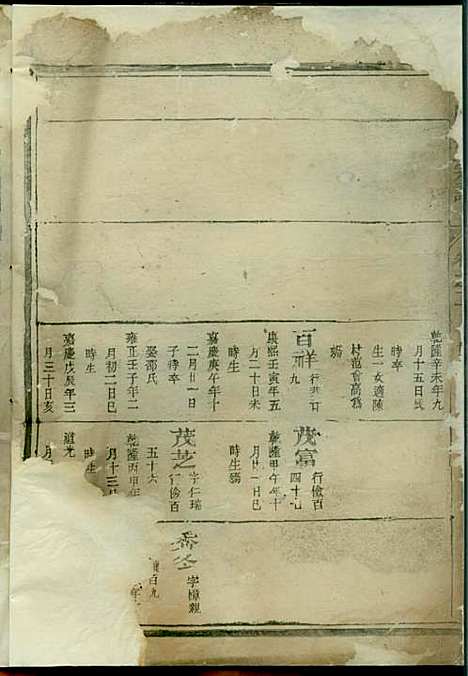 乾隆辛未年九
月十五日戌
時卒
生一女適陳
村范會高爲
媳
百祥
九
康熙壬寅年五
月二十日未
時生
嘉慶庚午年十
二月廿一日
子時卒
娶邵氏
雍正壬子年二
月初二日巳
時生
嘉慶戊辰年三
月三十日亥
茂富
行儉百
四十九
乾隆甲午年十
月廿一日巳
時生殤
茂芝
字仁瑞
行儉百
五十六
乾隆丙申年
月十三
時生
道光
月
字樟親
百九
年